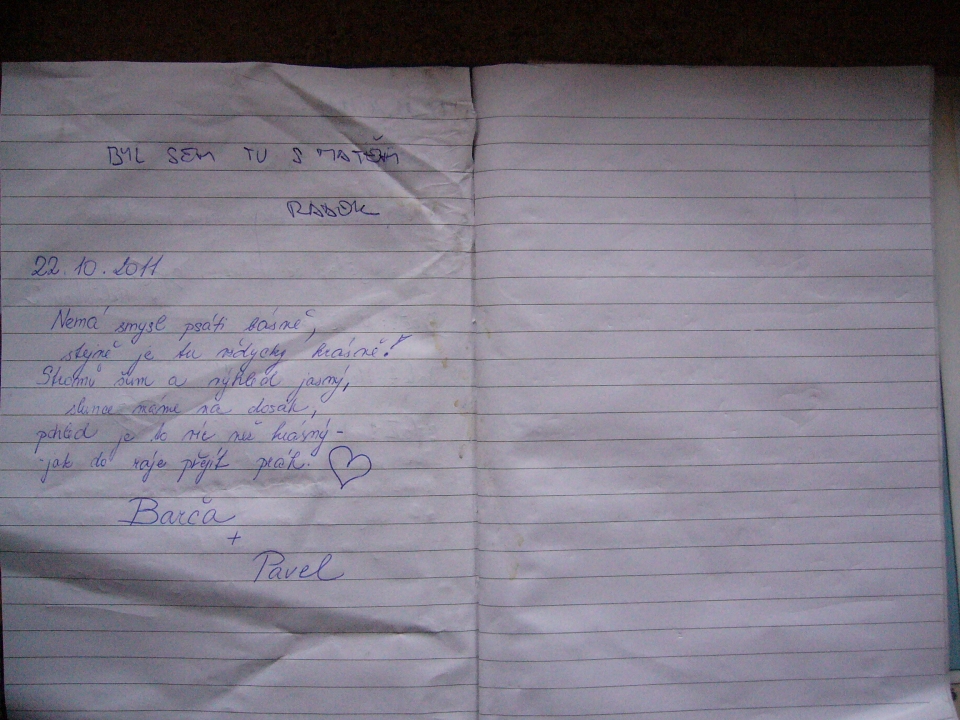 BYL SEM TU S MATĚM
RADOK
22.10.2011
Nemá smysl psáti básně,
stejně je tu vždycky krásně!
Stromů šum a výhled jasný,
slunce máme na dosah,
pohled je to víc než krásný -
jak do ráje přejít práh.
Barča
+
Pavel